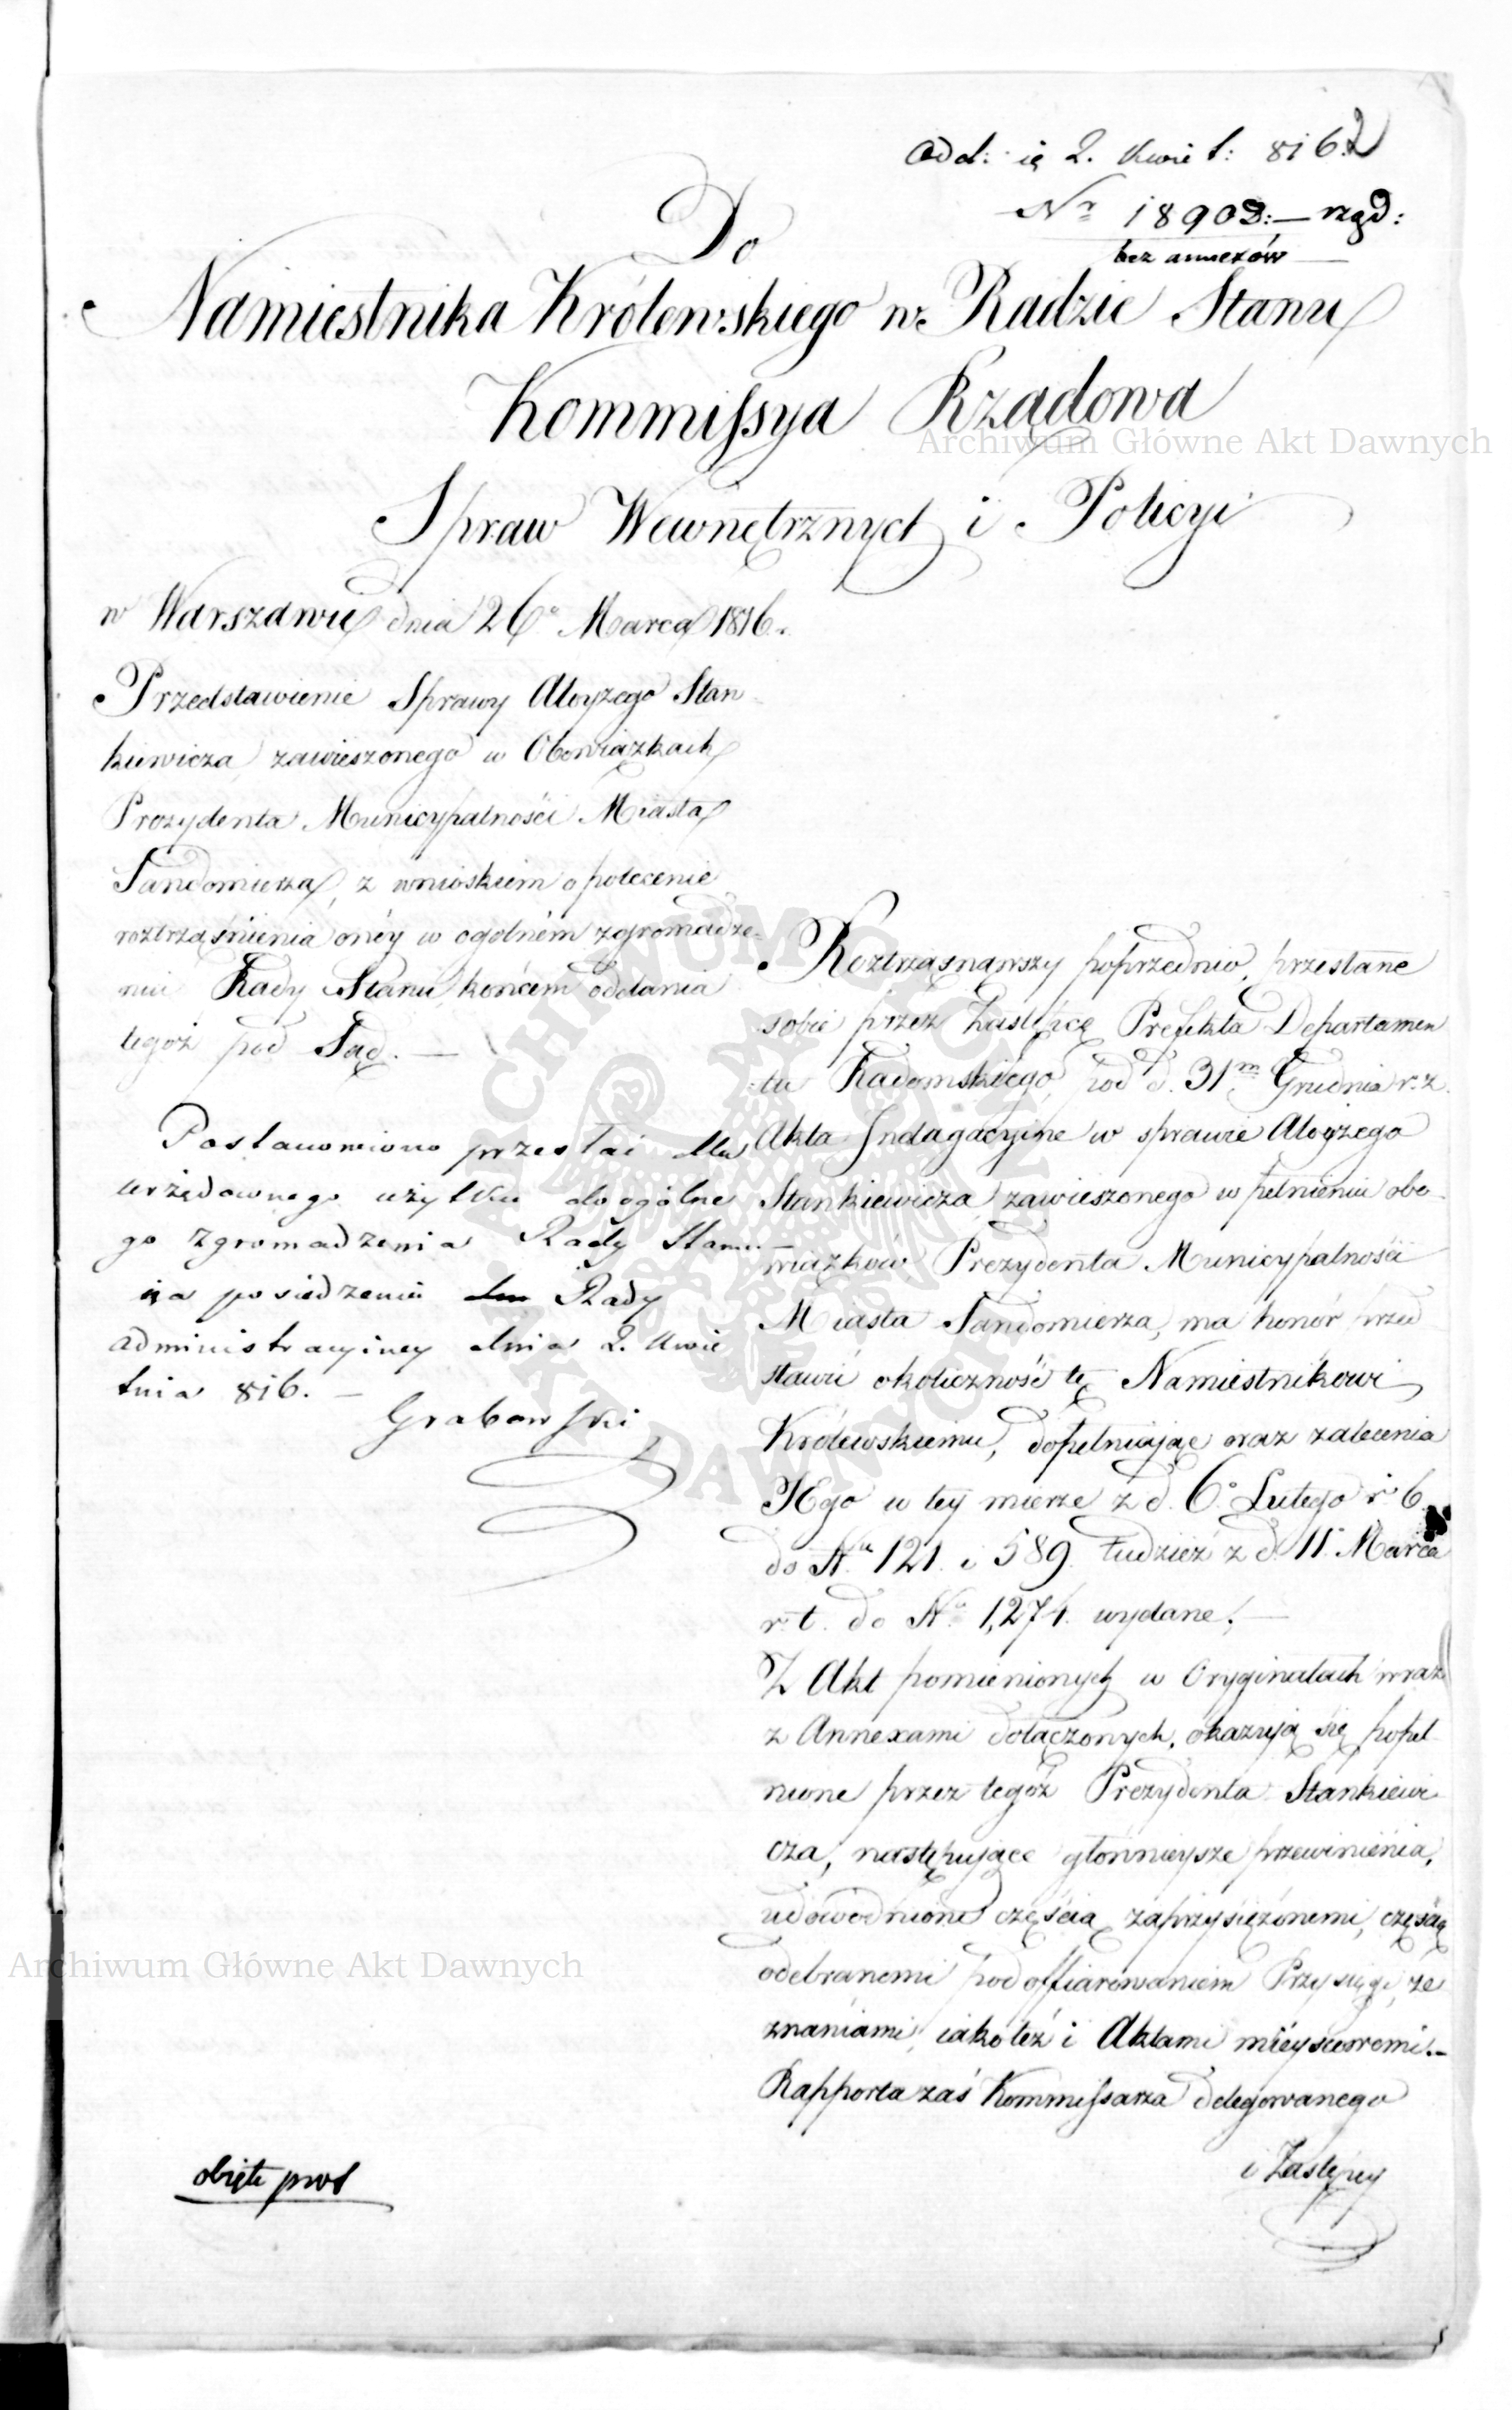 Odd: ię 2. Kwiet: 816. 2
Nr 18902:— rząd:
bez annexów
Do
Namiestnika Królewskiego w Radzie Stanu
Kommissya Rządowa
Spraw Wewnętrznych i Policyi
w Warszawie dnia 26o Marca 1816.
Przedstawienie Sprawy Aloyzego Stan
kiewicza zawieszonego w Obowiązkach
Prezydenta Municypalności Miasta
Sandomierza, z wnioskiem o polecenie
roztrząśnienia onéy w ogolném zgromadze-
niu Rady Stanu, końcem oddania
tegoż pod Sąd. —
Postanowiono przesłać dla
urzędownego użytku do ogólne
go zgromadzenia Rady Stanu —
na posiedzeniu Rady
administracyiney dnia 2. Kwie
tnia 816. —
Grabowski
Roztrząsnąwszy poprzednio, przesłane
sobie przez Zastępcę Prefekta Departamen
tu Radomskiego, pod d. 31m Grudnia r. z.
Akta Indagacyine w sprawie Aloyzego
Stankiewicza zawieszonego w pełnieniu obo-
wiązków Prezydenta Municypalności
Miasta Sandomierza, ma honor przed
stawić okoliczność tę Namiestnikowi
Królewskiemu, dopełniając oraz zalecenia
JEgo w tey mierze z d. 6o Lutego r. b.
do Nu 121. i 589. tudzież z d. 11. Marca
r. t. do No 1,274. wydane. —
Z Akt pomienionych w Oryginałach wraz
z Annexami dołączonych, okazują się popeł
nione przez tegoż Prezydenta Stankiewi
cza, następujące głównieysze przewinienia,
udowodnione częścią zaprzysiężonemi, częścią
odebranemi pod offiarowaniem Przysięgi, ze
znaniami, iako też i Aktami mieyscowemi.—
Rapporta zaś Kommissarza delegowanego
i Zastępcy
obięte prot
Archiwum Główne Akt Dawnych
Archiwum Główne Akt Dawnych
ARCHIWUM GŁÓWNE AKT DAWNYCH